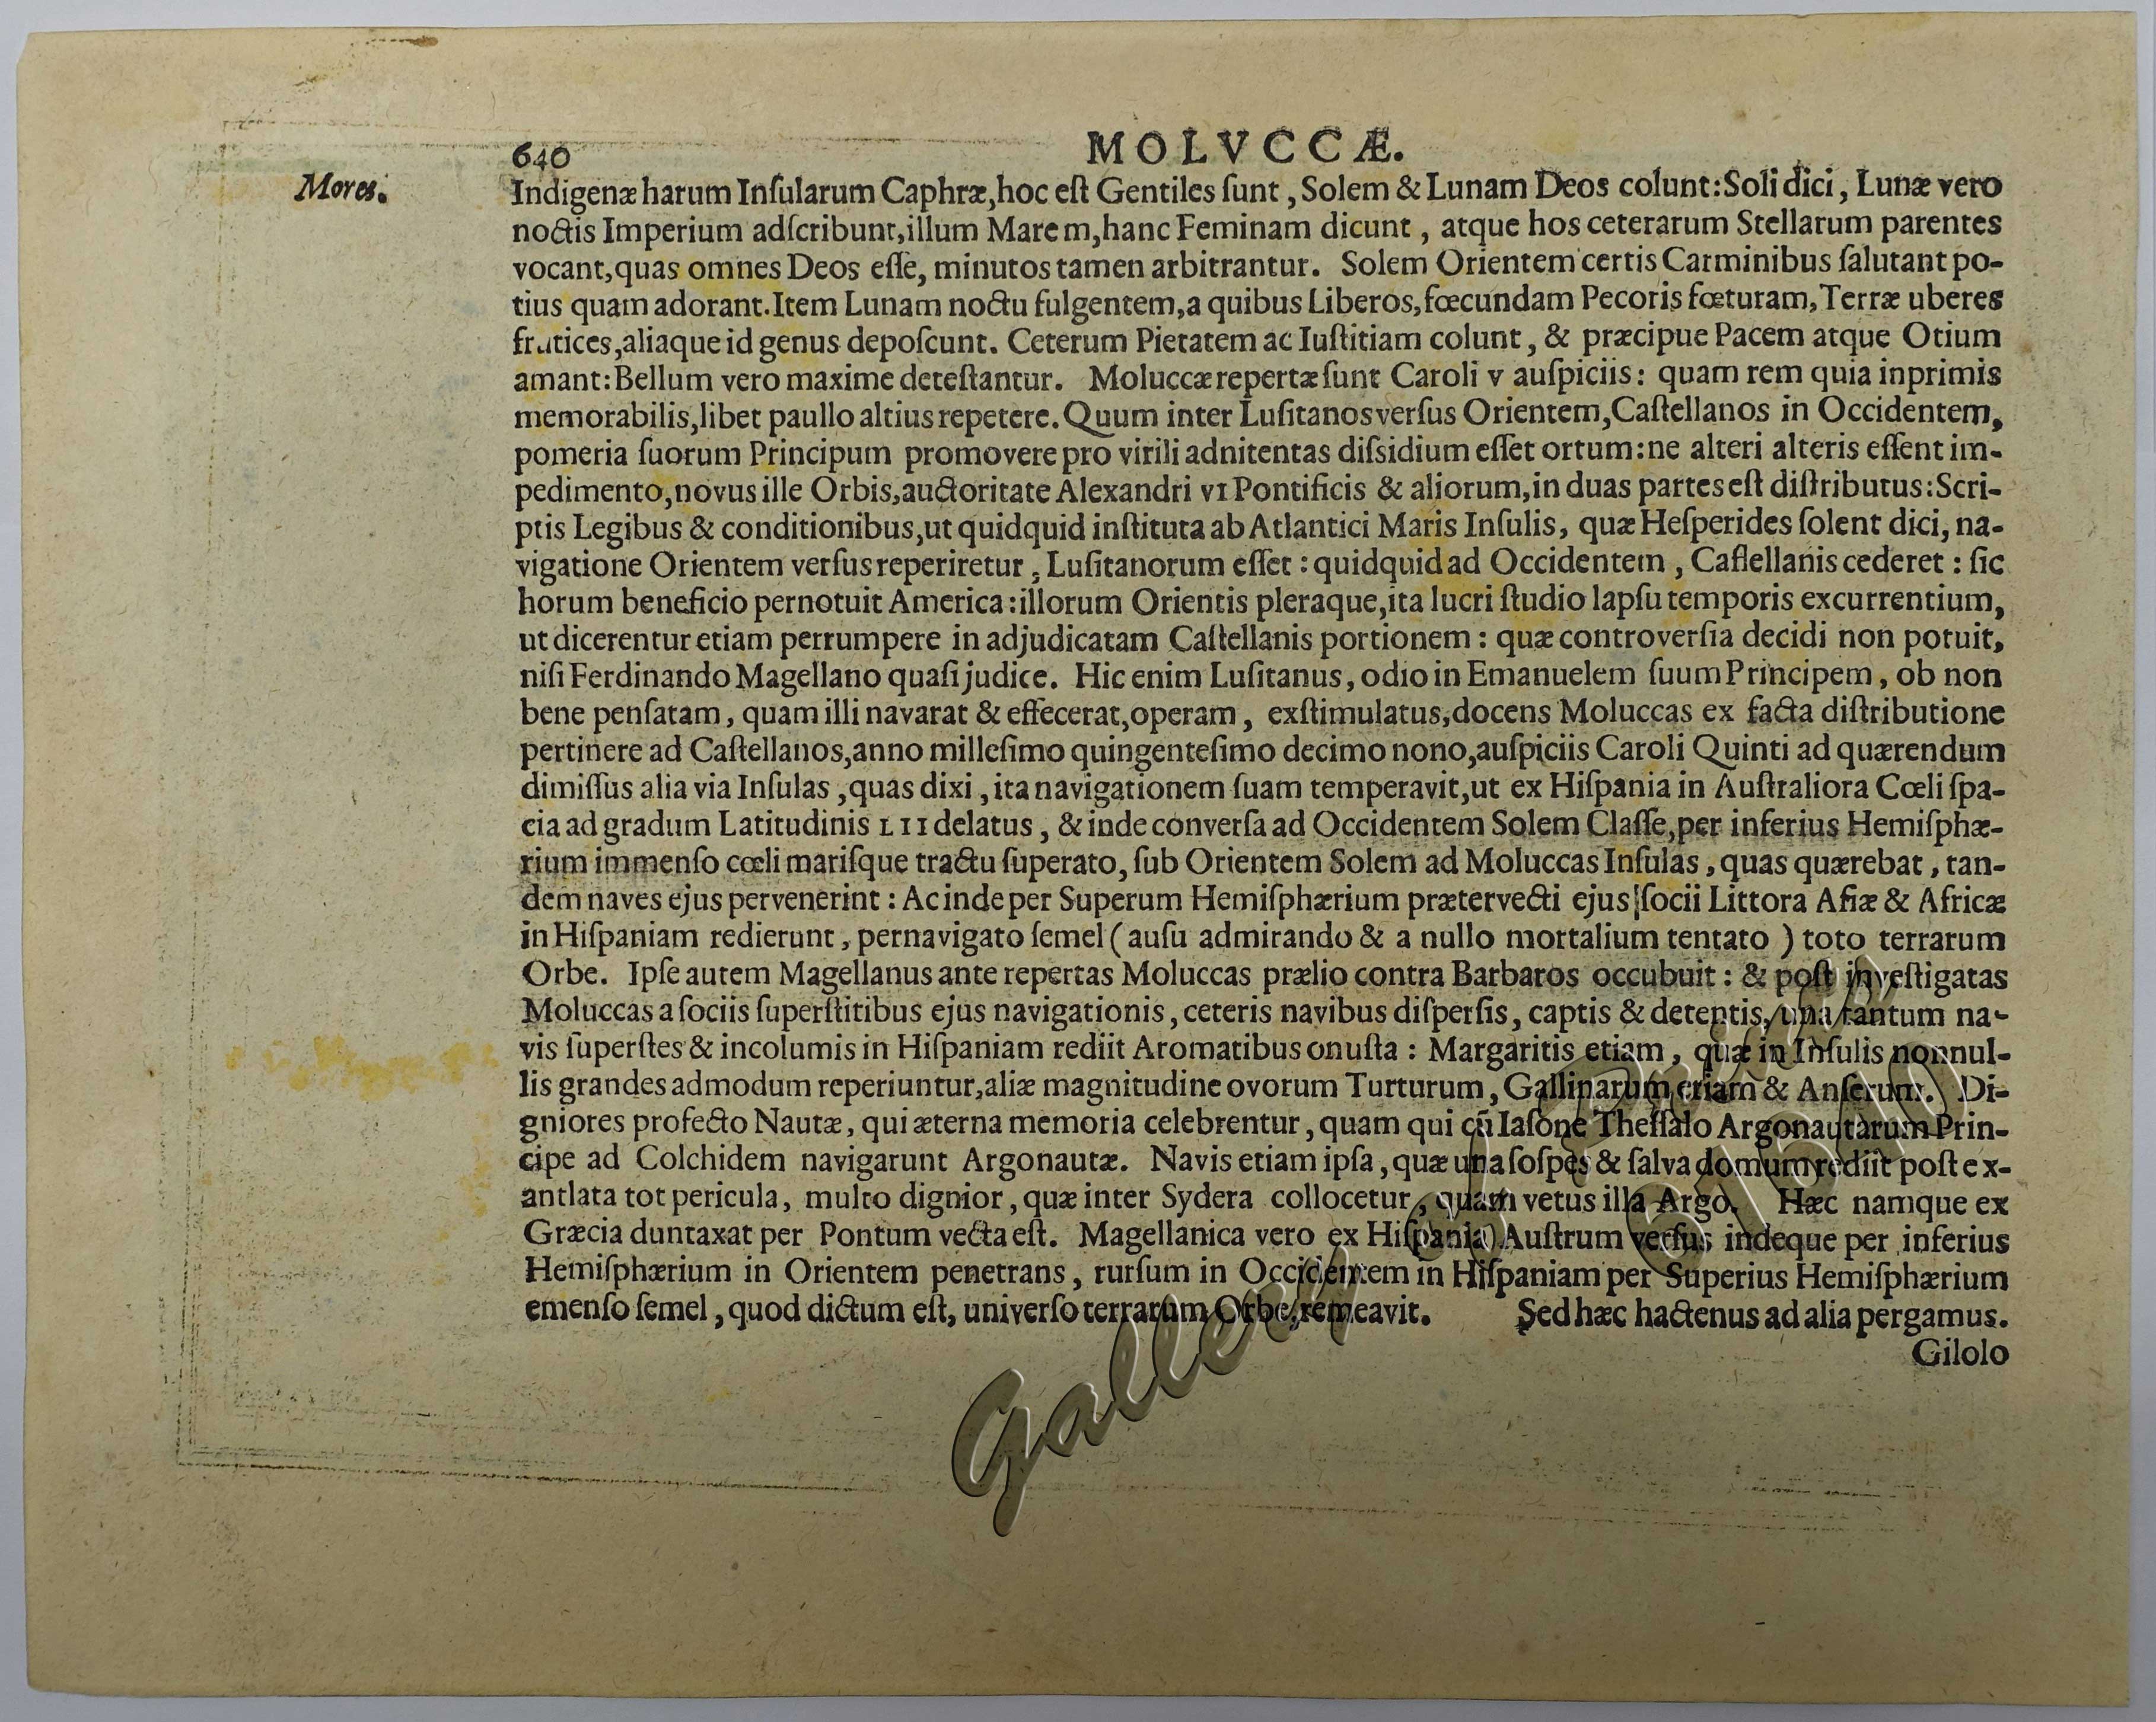 640
MOLVCCÆ.
Mores.
Indigenæ harum Inſularum Caphræ, hoc eſt Gentiles ſunt, Solem & Lunam Deos colunt: Soli dici, Lunæ vero
noctis Imperium adſcribunt, illum Marem, hanc Feminam dicunt, atque hos ceterarum Stellarum parentes
vocant, quas omnes Deos eſſe, minutos tamen arbitrantur. Solem Orientem certis Carminibus ſalutant po-
tius quam adorant. Item Lunam noctu fulgentem, a quibus Liberos, fœcundam Pecoris fœturam, Terræ uberes
frutices, aliaque id genus depoſcunt. Ceterum Pietatem ac Iuſtitiam colunt, & præcipue Pacem atque Otium
amant: Bellum vero maxime deteſtantur. Moluccæ repertæ ſunt Caroli v auſpiciis: quam rem quia inprimis
memorabilis, libet paullo altius repetere. Quum inter Luſitanos verſus Orientem, Caſtellanos in Occidentem,
pomeria ſuorum Principum promovere pro virili adnitentas diſsidium eſſet ortum: ne alteri alteris eſſent im-
pedimento, novus ille Orbis, auctoritate Alexandri VI Pontificis & aliorum, in duas partes eſt diſtributus: Scri-
ptis Legibus & conditionibus, ut quidquid inſtituta ab Atlantici Maris Inſulis, quæ Heſperides ſolent dici, na-
vigatione Orientem verſus reperiretur, Luſitanorum eſſet: quidquid ad Occidentem, Caſtellanis cederet: ſic
horum beneficio pernotuit America: illorum Orientis pleraque, ita lucri ſtudio lapſu temporis excurrentium,
ut dicerentur etiam perrumpere in adjudicatam Caſtellanis portionem: quæ controverſia decidi non potuit,
niſi Ferdinando Magellano quaſi judice. Hic enim Luſitanus, odio in Emanuelem ſuum Principem, ob non
bene penſatam, quam illi navarat & effecerat, operam, exſtimulatus, docens Moluccas ex facta diſtributione
pertinere ad Caſtellanos, anno milleſimo quingenteſimo decimo nono, auſpiciis Caroli Quinti ad quærendum
dimiſſus alia via Inſulas, quas dixi, ita navigationem ſuam temperavit, ut ex Hiſpania in Auſtraliora Cœli ſpa-
cia ad gradum Latitudinis LII delatus, & inde converſa ad Occidentem Solem Claſſe, per inferius Hemiſphæ-
rium immenſo cœli mariſque tractu ſuperato, ſub Orientem Solem ad Moluccas Inſulas, quas quærebat, tan-
dem naves ejus pervenerint: Ac inde per Superum Hemiſphærium prætervecti ejus ſocii Littora Aſiæ & Africæ
in Hiſpaniam redierunt, pernavigato ſemel ( auſu admirando & a nullo mortalium tentato ) toto terrarum
Orbe. Ipſe autem Magellanus ante repertas Moluccas prælio contra Barbaros occubuit: & poſt inveſtigatas
Moluccas a ſociis ſuperſtitibus ejus navigationis, ceteris navibus diſperſis, captis & detentis, una tantum na-
vis ſuperſtes & incolumis in Hiſpaniam rediit Aromatibus onuſta: Margaritis etiam, quæ in Inſulis nonnul-
lis grandes admodum reperiuntur, aliæ magnitudine ovorum Turturum, Gallinarum etiam & Anſerum. Di-
gniores profecto Nautæ, qui æterna memoria celebrentur, quam qui cū Iaſone Theſſalo Argonautarum Prin-
cipe ad Colchidem navigarunt Argonautæ. Navis etiam ipſa, quæ una ſoſpes & ſalva domum rediit poſt ex-
antlata tot pericula, multo dignior, quæ inter Sydera collocetur, quam vetus illa Argo. Hæc namque ex
Græcia duntaxat per Pontum vecta eſt. Magellanica vero ex Hiſpania Auſtrum verſus indeque per inferius
Hemiſphærium in Orientem penetrans, rurſum in Occidentem in Hiſpaniam per Superius Hemiſphærium
emenſo ſemel, quod dictum eſt, univerſo terrarum Orbe, remeavit. Sed hæc hactenus ad alia pergamus.
Gilolo
Gallery